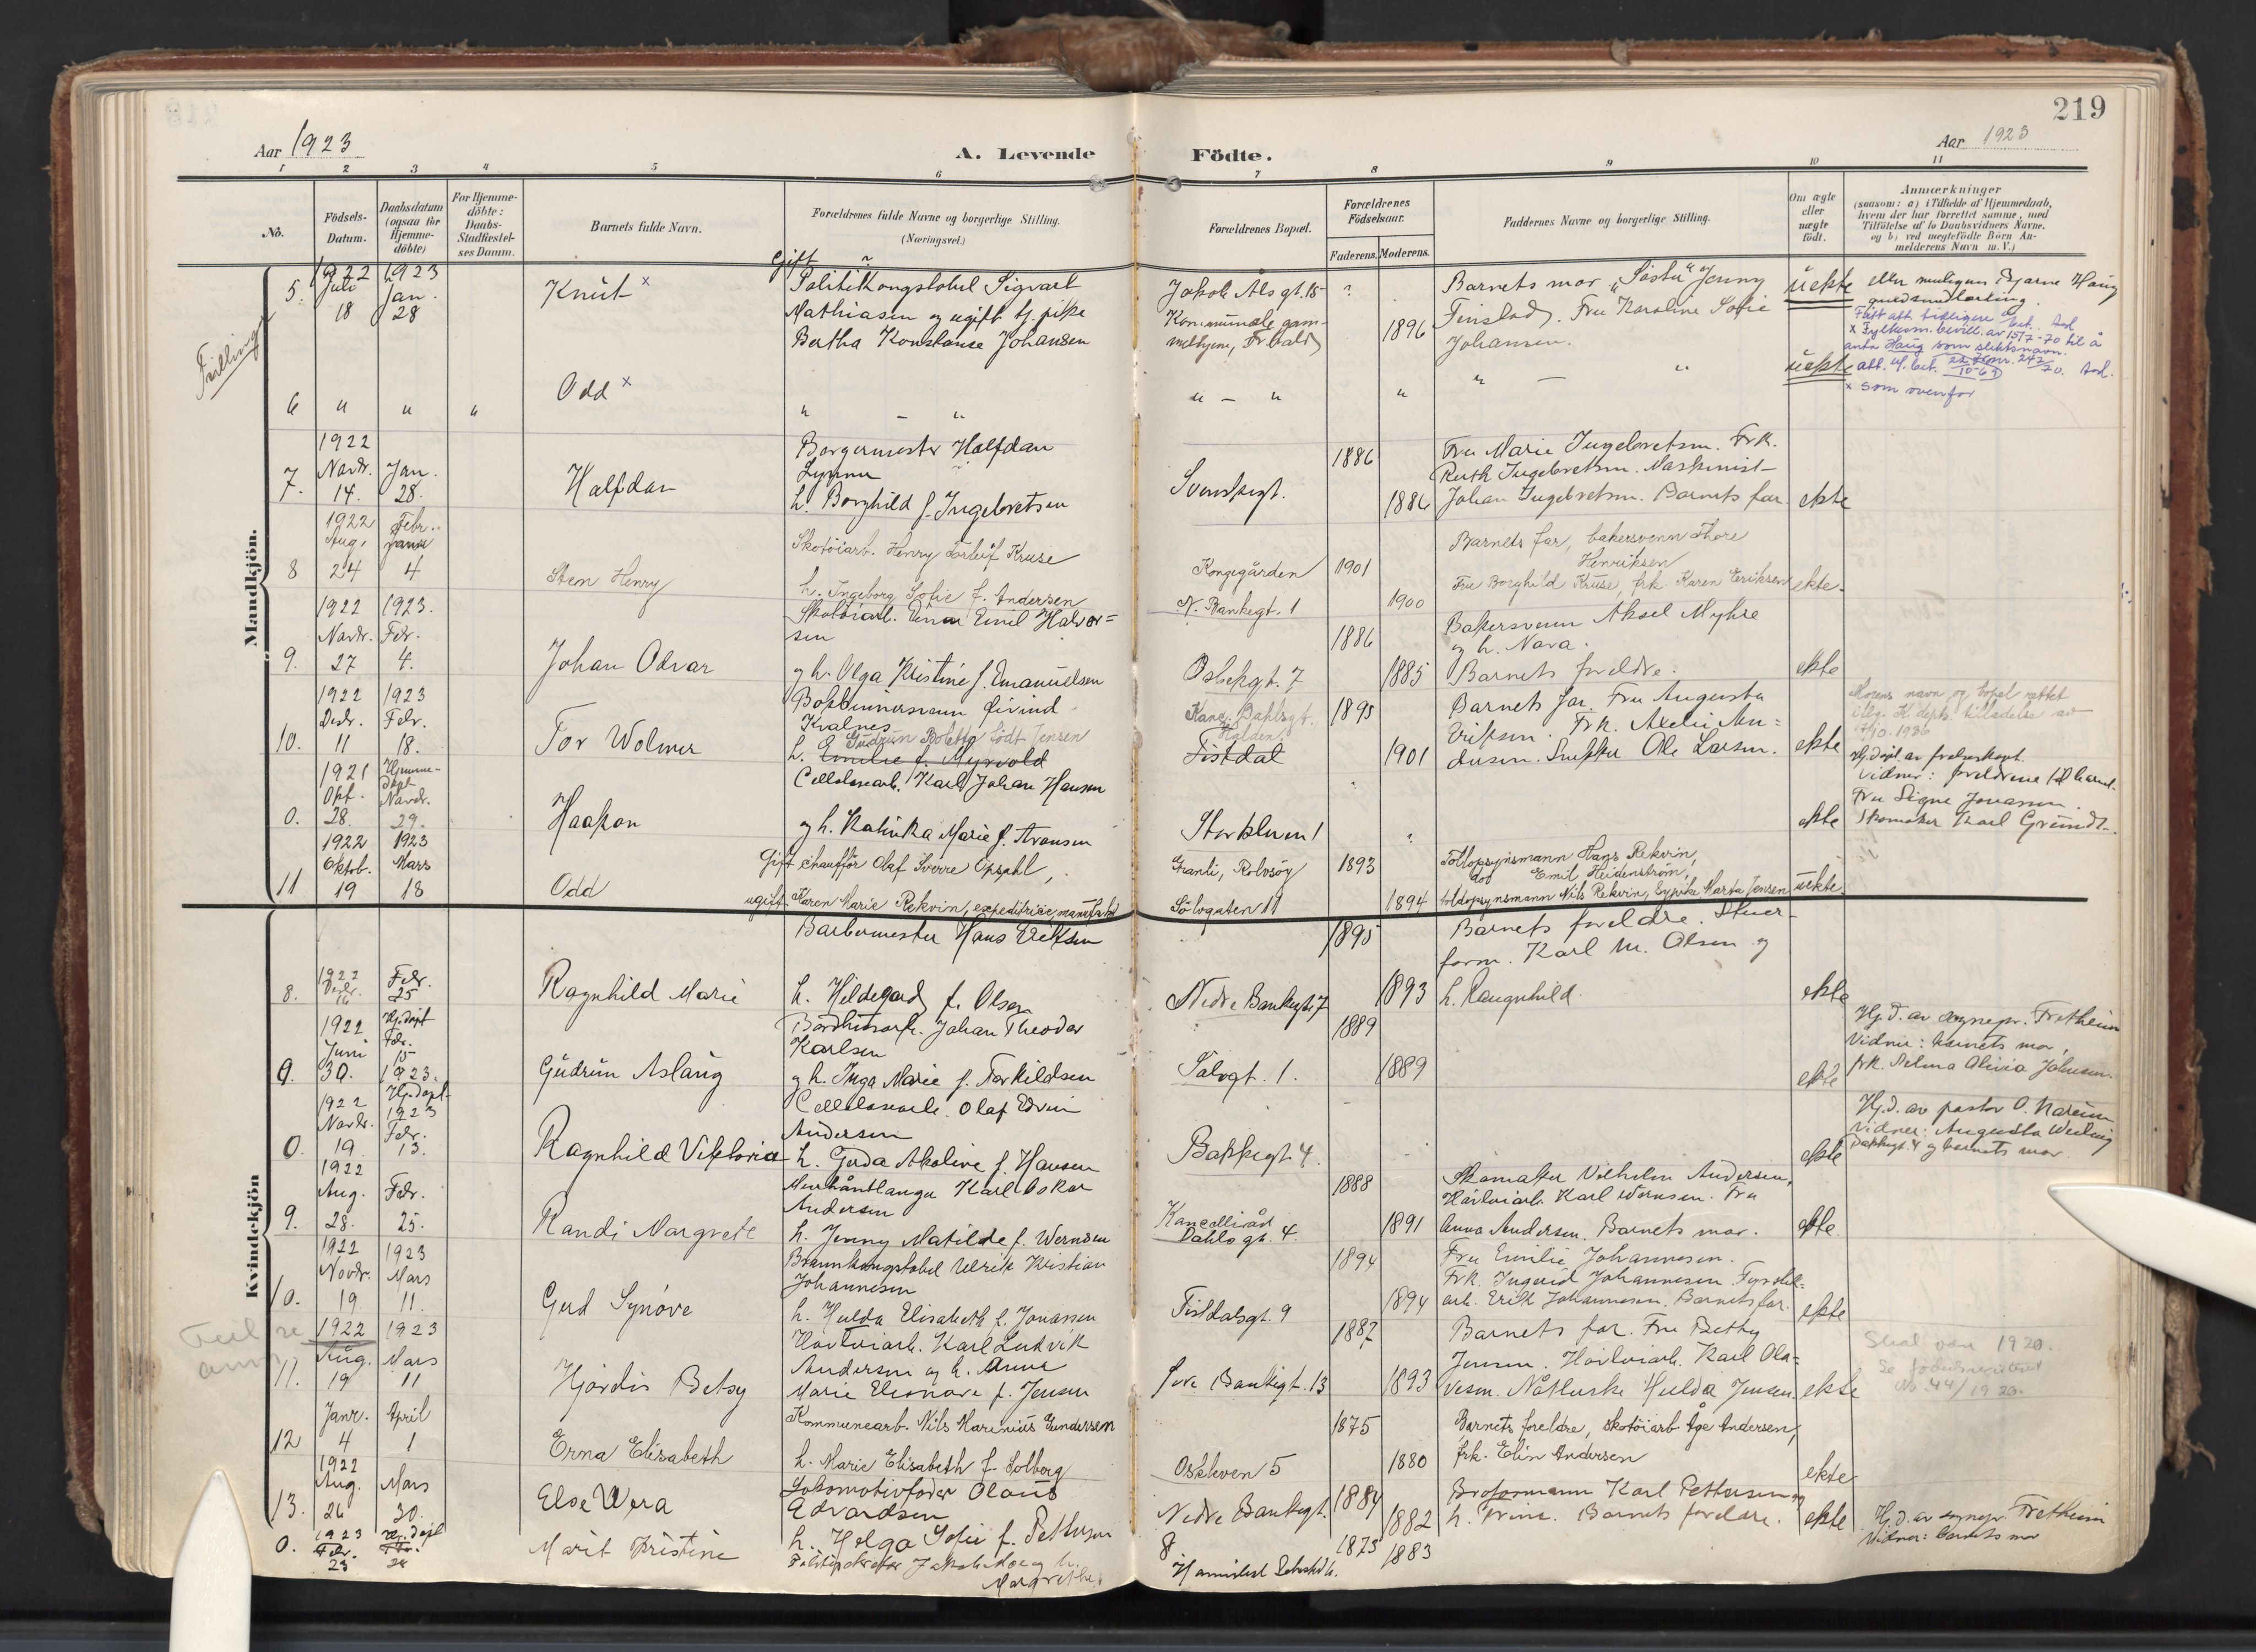 219
Aar 1923
A. Levende Födte.
Aar 1923
1 2 3 4 5 6 7 8 9 10 11
No.
Födsels-Datum.
Daabsdatum (ogsaa for Hjemme-döbte)
For Hjemme-döbte: Daabs-Stadfæstel-ses Datum.
Barnets fulde Navn.
Forældrenes fulde Navne og borgerlige Stilling.
(Næringsvei.)
Forældrenes Bopæl.
Forældrenes Födselsaar.
Faderens. Moderens.
Faddernes Navne og borgerlige Stilling.
Om ægte eller uægte födt.
Anmærkninger
(saasom: a) i Tilfælde af Hjemmedaab,
hvem der har forrettet samme, med
Tilföielse af to Daabsvidners Navne,
og b) ved uægtefödte Börn An-
melderens Navn m. V.)
Mandkjön.
Tvilling
5. 1922 Juli 18 1923 Jan. 28
Knut x
Gift Politikongstabel Sigvart
Mathiasen og ugift tj. pike
Bertha Konstanse Johansen
Jakob Alsgt. 15
Kommunale gam-
melhjem, Fr.hald
? 1896
Barnets mor, "Søster" Jenny
Finstad, Fru Karoline Sofie
Johansen.
uekte
eller muligens Bjarne Haug
x Fylkesm. bevill. av 15/7-70 til å
anta Haug som slektsnavn.
6 " " "
Odd x
" — "
" — "
"
" — "
uekte
x som ovenfor
7. 1922 Novbr. 14. Jan. 28.
Halfdan
Borgermester Halfdan
h. Borghild f. Ingebretsen
Svenskegt.
1886 1886
Fru Marie Ingebretsen. Frk.
Ruth Ingebretsen. Maskinist
Johan Ingebretsen. Barnets far
ekte
8 1922 Aug. 24 Febr. 4
Sten Henry
Skotöiarb. Henry Torleif Kruse
h. Ingeborg Sofie f. Andersen
Kongegården
N. Bankegt. 1
1901 1900
Barnets far, bakersvenn Thore
Henriksen
Fru Borghild Kruse, frk. Karen Eriksen
ekte.
9. 1922 Novbr. 27 1923. Febr. 4.
Johan Odvar
Skotöiarb. Einar Emil Halvor=
sen
og h. Olga Kristine f. Emanuelsen
Osbekgt. 7
1886 1885
Bakersvenn Aksel Myhre
og h. Nara.
Barnets foreldre.
ekte
10. 1922 Desbr. 11 1923 Febr. 18.
Tor Wolmer
Bokbinnersvenn Øivind
Kvalnes
h. Gudrun Boletta födt Jensen
Emilie f. Myrvold
Kanc. Dahlsgt.
Halden
Fistdal
1895 1901
Barnets far. Fru Augusta
Eriksen. Frk. Axeli An=
dersen. Snekker Ole Larsen.
ekte
Morens navn og bopel rettet
iflg. K. depts. tilladelse av
7/10-1936
0. 1921 Okt. 28. Hjemme-döpt Novbr. 29.
Haakon
Cellulosearb. Karl Johan Hansen
og h. Katinka Marie f. Aronsen
Storkleven 1
ekte
Hj.døpt av frelserkapt.
Vidner: foreldrene til barnet.
Fru Signe Jonassen.
Skomaker Karl Grundt.
11 1922 Oktob. 19 1923 Mars 18
Odd
Gift chauffør Olaf Sverre Opsahl,
ugift Karen Marie Rekvin, expeditrice,
Granli, Rolvsöy
Sölvgaten 11
1893 1894
Tollopsynsmann Hans Rekvin,
do Emil Heidenström,
toldopsynsmann Nils Rekvin, Sypike Marta Jensen
uekte.
Kvindekjön
8. 1922 Desbr. 16 Febr. 25
Ragnhild Marie
Barbermester Hans Eriksen
h. Hildegard f. Olsen
Nedre Bankegt. 7
1895 1893
Barnets foreldre. Stuer-
form. Karl M. Olsen og
h. Raugnhild.
ekte
9. 1922 Juni 30. Hj.döpt Febr. 15 1923.
Gudrun Aslaug
Johan Theodor
Karlsen
og h. Inga Marie f. Torkildsen
Sølvgt. 1.
1889 1889
ekte
Hj.d. av sognepr. Fretheim
Vidner: barnets mor,
frk. Selma Olivia Johnsen.
0. 1922 Novbr. 19 Hj.døpt 1923 Febr. 13.
Ragnhild Viktoria
Cellulosearb. Olaf Edvin
Andersen
h. Gerda Akoline f. Hansen
Bakkegt. 4.
ekte
Hj.d. av pastor O.
Vidner: Augusta
Bakkegt. 4 og barnets mor
9. 1922 Aug. 28. Febr. 25.
Randi Margrete
Murhåntlanger Karl Oskar
Andersen
h. Jenny Matilde f. Wernsen
Kancelliråd
Dahls gt. 4.
1888 1891
Skomaker Vilhelm Andersen,
Hövleriarb. Karl Wernsen. Fru
Anna Andersen. Barnets mor.
ekte.
10. 1922 Novbr. 19. 1923 Mars 11.
Gerd Synöve
Brannkongstabel Ulrik Kristian
Johannesen
h. Hulda Elisabeth f. Jonassen
Fistdalsgt. 9
1894 1894
Fru Emilie Johannesen.
Frk. Ingerid Johannesen. Fyrstik=
arb. Erik Johannesen. Barnets far.
ekte
Feil
11. 1922 Aug. 19 1923 Mars 11
Hjördis Betsy
Hövleriarb. Karl Ludvik
Andersen og h. Anna
Marie Eleonore f. Jensen
Övre Bankegt. 13
1887 1893
Barnets far. Fru Bethy
Jensen. Hövleriarb. Karl Ola=
vesen. Nåtlerske Hulda Jensen.
ekte
Skal være 1920.
Se fødselsregisteret
No 44/1920.
12 Janr. 4 April 1
Erna Elisabeth
Kommunearb. Nils Marinius Gundersen
h. Marie Elisabeth f. Solberg
Oskleven 5
1875 1880
Barnets foreldre, skotöiarb. Åge Andersen,
frk. Elin Andersen
ekte
13. 1922 Aug. 26 Mars 30.
Else Wera
Lokomotivfører Olaus
Edvardsen
h. Helga Sofie f. Pettersen
Nedre Bankegt. 8
1884 1882
Broformann Karl Pettersen og
h. Trine. Barnets foreldre.
ekte
0. 1923 Febr. 23 Hj.døpt Febr. 24
Marit Kristine
h.
Margrethe
1873 1883
Hj.d. av sognepr. Fretheim
Vidner: barnets mor